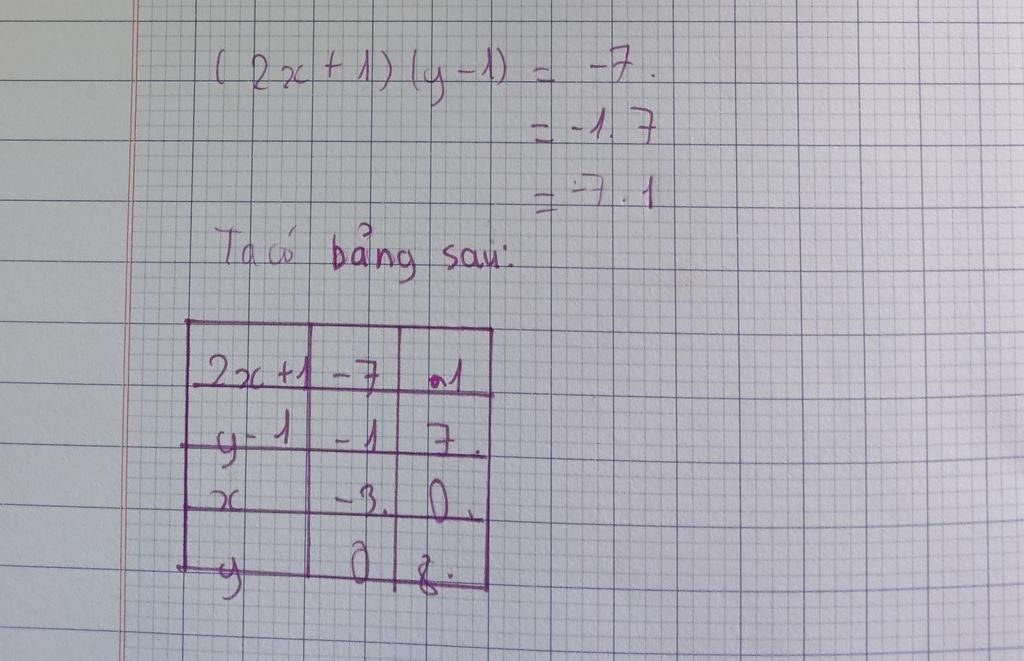 (2x+1)(y-1) = -7.
= -1.7
= -7.1
Ta có bảng sau:
2x+1 -7 1
y-1 -1 7.
x -3. 0.
y 0 8.